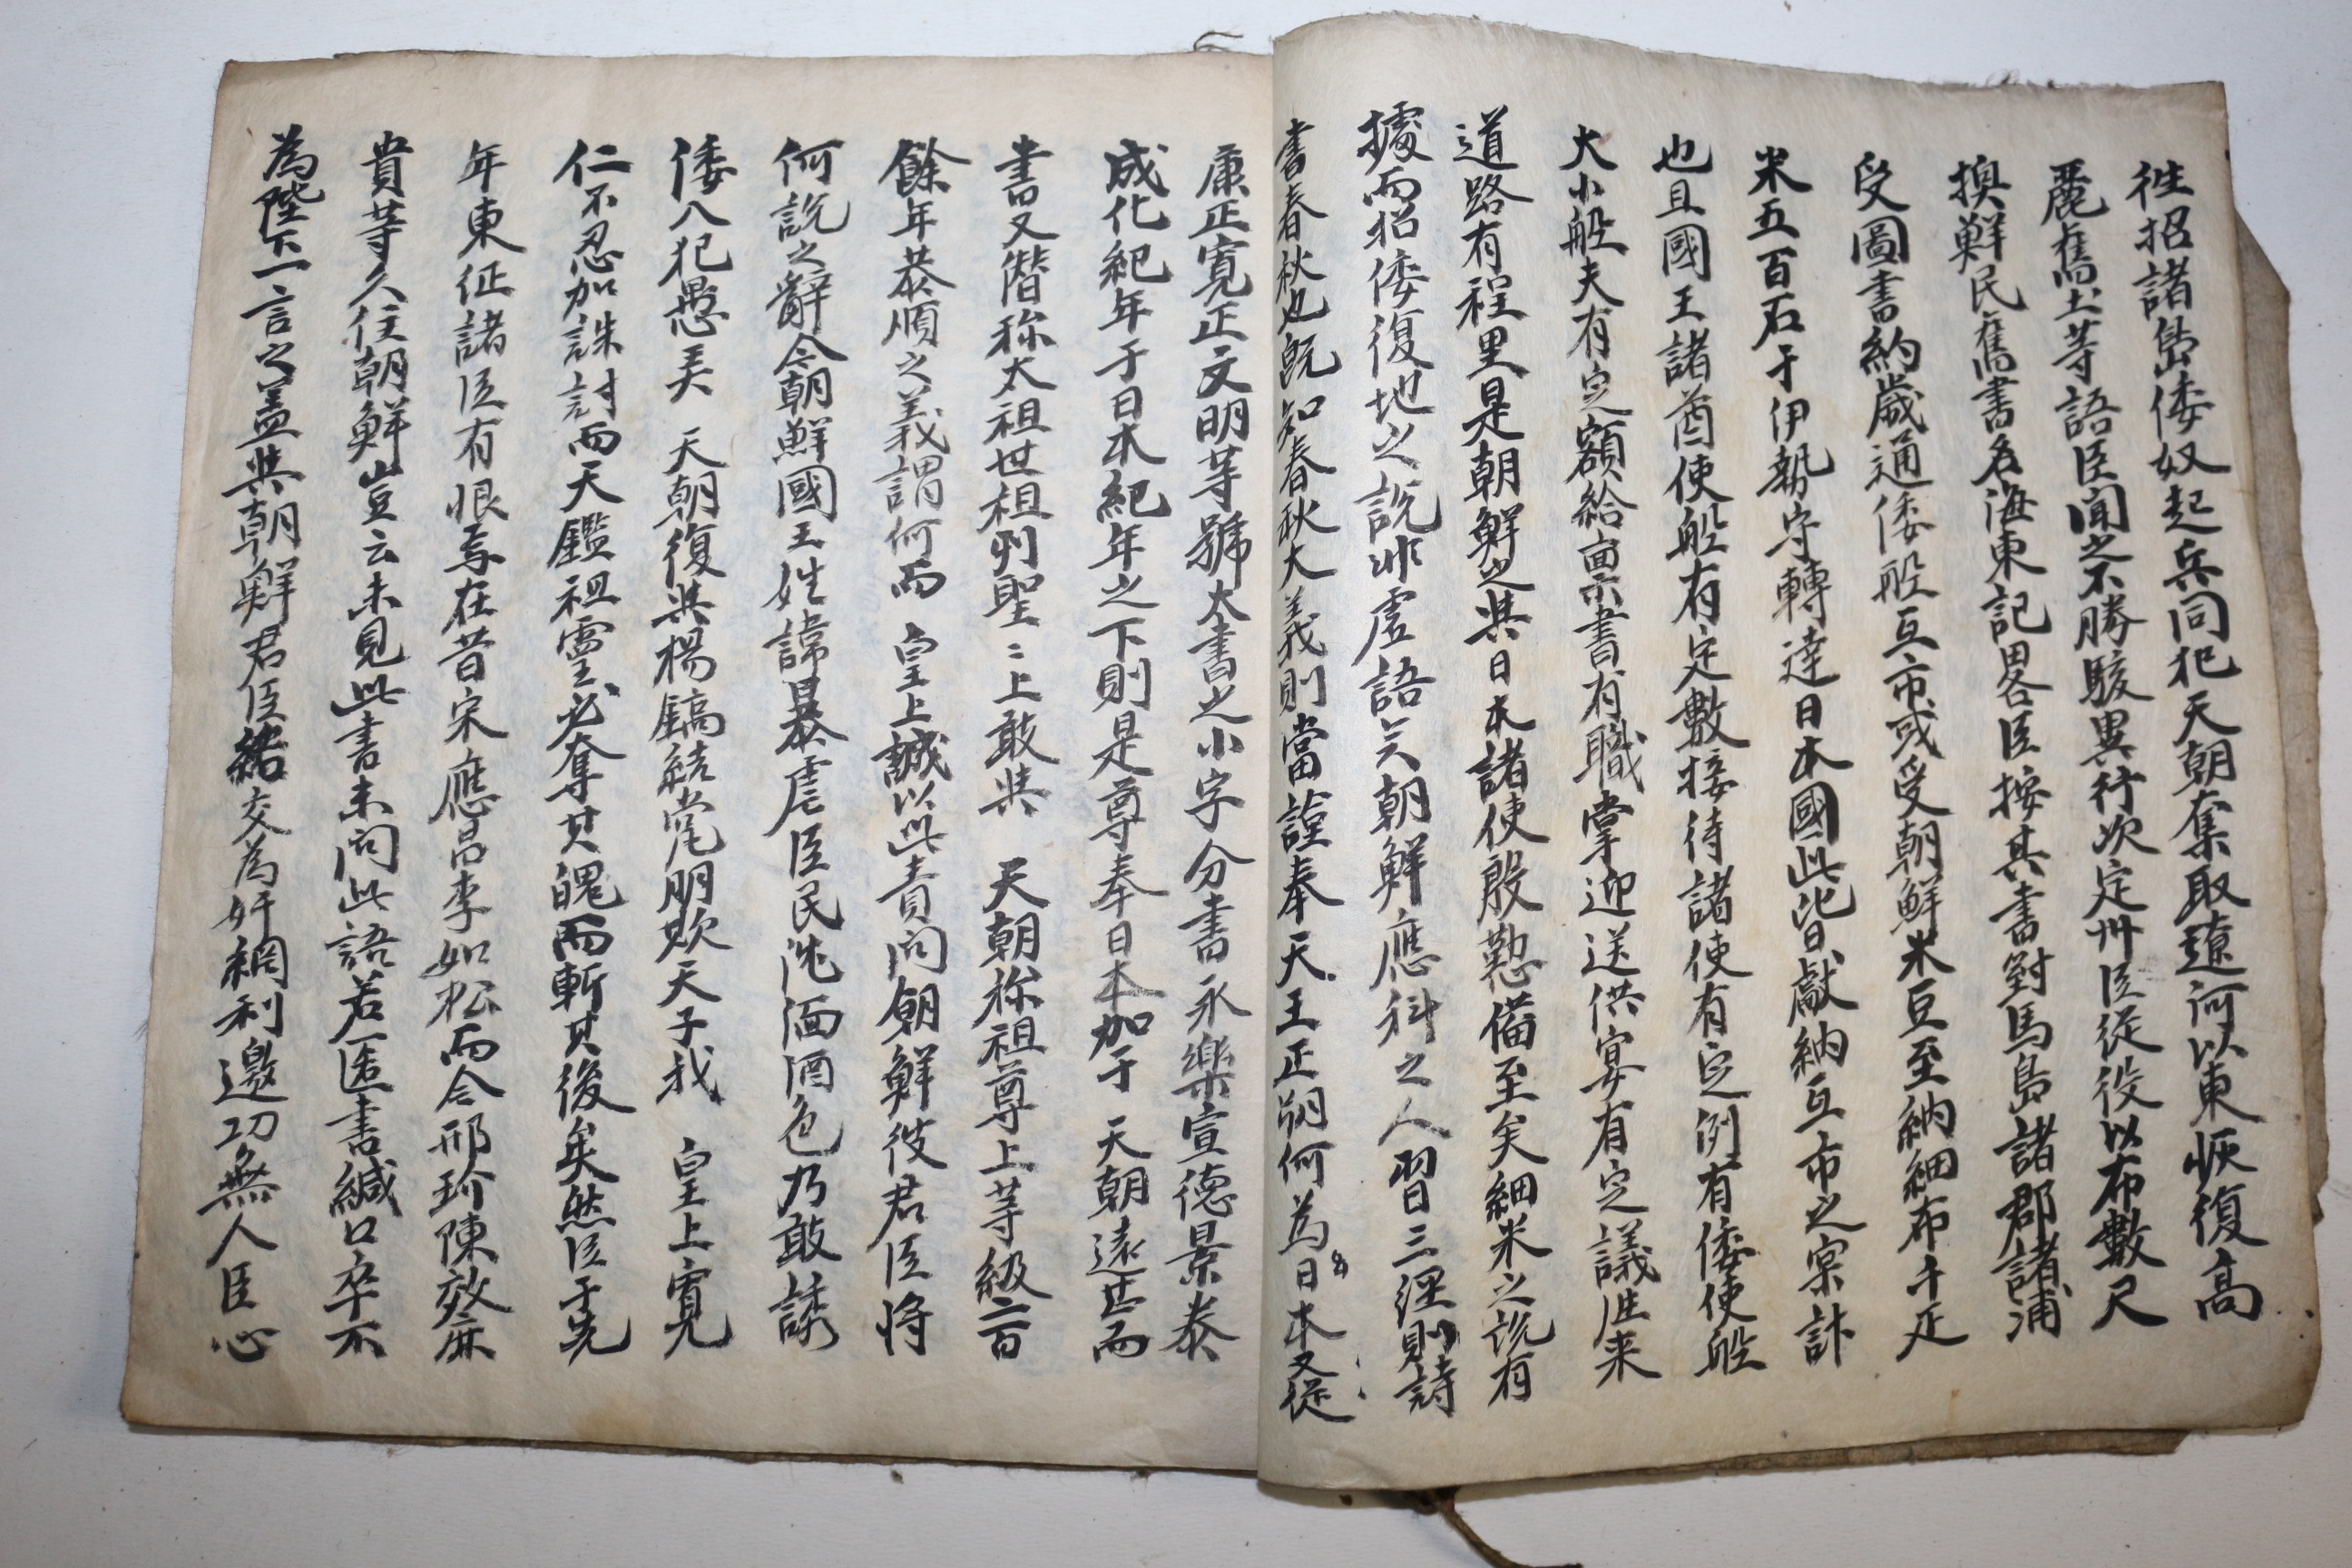 往招諸島倭奴起兵同犯天朝奪取遼河以東恢復高
麗舊土等語臣聞之不勝駭異行次定州臣從役以布數尺
換鮮民舊書名海東記畧臣按其書對馬島諸郡諸浦
受圖書約歲通倭船互市或受朝鮮米豆至納細布千疋
米五百石于伊勢守轉達日本國此皆獻納互市之案計
也且國王諸酋使船有定數接待諸使有定例有倭使船
大小船夫有定額給禀書有職掌迎送供宴有定議往来
道路有程里是朝鮮之與日本諸使殷懃備至矣細米之說有
據而招倭復地之說非虛語矣朝鮮應科之人習三經則詩
書春秋也旣知春秋大義則當謹奉天王正朔何為日本又從
康正寬正文明等號大書之小字分書永樂宣德景泰
成化紀年于日本紀年之下則是尊奉日本加于 天朝遠甚而
書又僭称太祖世祖列聖〻上敢與 天朝称祖尊上等級二百
餘年恭順之義謂何而 皇上誠以此責问朝鮮彼君臣将
何說之辭今朝鮮國王姓諱暴虐臣民沈湎酒色乃敢誘
倭入犯愚美 天朝復與楊鎬結党朋欺天子我 皇上寬
仁不忍加誅討而天鑑祖靈必奪其魄而斬其後矣然臣于先
年東征諸臣有恨焉在昔宋應昌李如松而今邢玠陳效麻
貴等久住朝鮮豈云未見此書未问此語若匿書緘口卒不
為陛下一言之盖與朝鮮君臣結交為奸網利邀功無人臣心